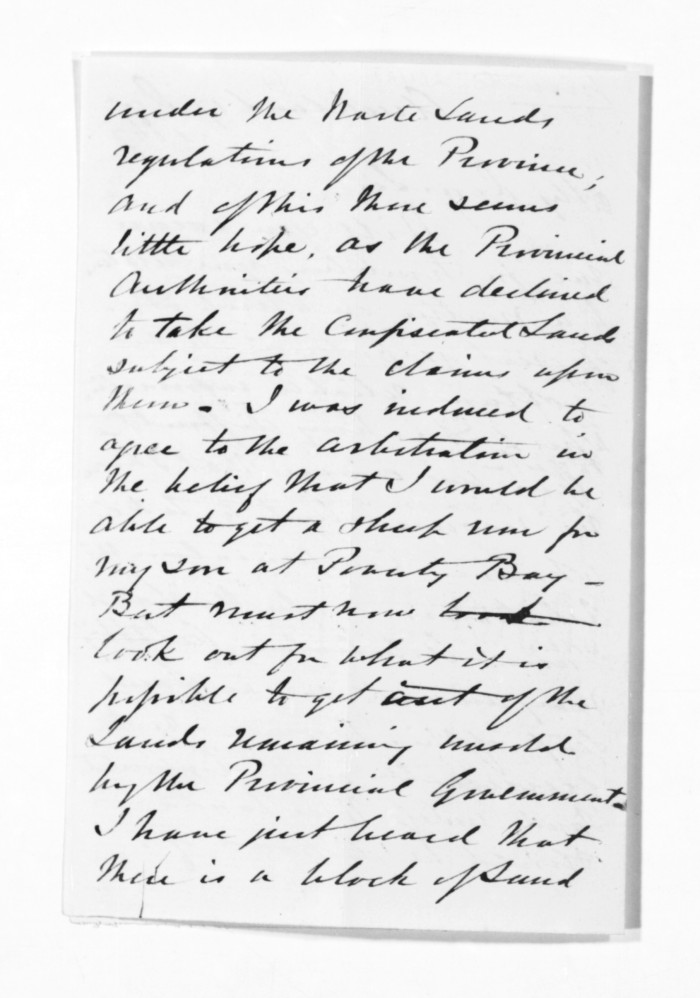 under the Waste Lands
regulations of the Province;
and of this there seems
little hope, as the Provincial
Authorities have declined
to take the Confiscated Lands
subject to the claims upon
them - I was induced to
agree to the arbitration in
the belief that I would be
able to get a sheep run for
my son at Poverty Bay -
But must now
look out for what it is
possible to get out of the
Lands remaining unsold
by the Provincial Government -
I have just heard that
there is a block of Land